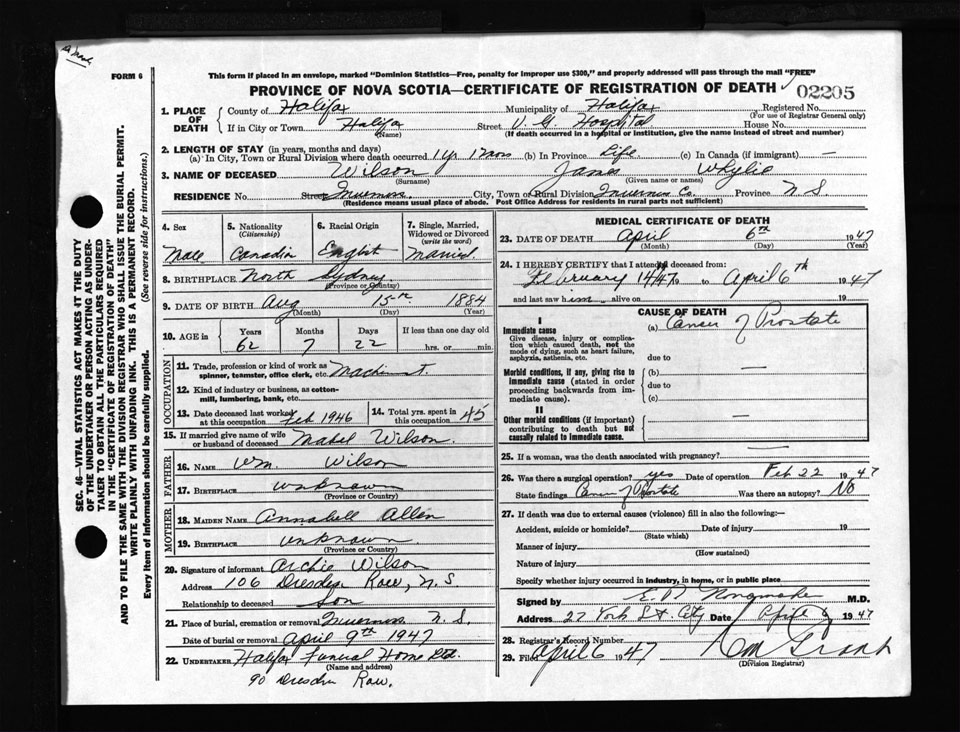 FORM 6
This form if placed in an envelope, marked "Dominion Statistics—Free, penalty for improper use $300," and properly addressed will pass through the mail "FREE"
PROVINCE OF NOVA SCOTIA—CERTIFICATE OF REGISTRATION OF DEATH
02205
1. PLACE OF DEATH
County of Halifax Municipality of Halifax Registered No.
(For use of Registrar General only)
If in City or Town Halifax Street V. G. Hospital House No.
(Name) (If death occurred in a hospital or institution, give the name instead of street and number)
2. LENGTH OF STAY (in years, months and days)
(a) In City, Town or Rural Division where death occurred 1 yr (b) In Province Life (c) In Canada (if immigrant) —
3. NAME OF DECEASED Wilson James Whylie
(Surname) (Given name or names)
RESIDENCE No. Street Inverness City, Town or Rural Division Inverness Co. Province N. S.
(Residence means usual place of abode. Post Office Address for residents in rural parts not sufficient)
SEC. 46—VITAL STATISTICS ACT MAKES IT THE DUTY
OF THE UNDERTAKER OR PERSON ACTING AS UNDER-
TAKER TO OBTAIN ALL THE PARTICULARS REQUIRED
IN THE "CERTIFICATE OF REGISTRATION OF DEATH"
AND TO FILE THE SAME WITH THE DIVISION REGISTRAR WHO SHALL ISSUE THE BURIAL PERMIT.
WRITE PLAINLY WITH UNFADING INK. THIS IS A PERMANENT RECORD.
Every item of information should be carefully supplied. (See reverse side for instructions.)
4. Sex
Male
5. Nationality
(Citizenship)
Canadian
6. Racial Origin
English
7. Single, Married,
Widowed or Divorced
(write the word)
Married
8. BIRTHPLACE North Sydney
(Province or Country)
9. DATE OF BIRTH Aug 15th 1884
(Month) (Day) (Year)
10. AGE in Years Months Days If less than one day old
62 7 22 hrs. or min.
OCCUPATION
11. Trade, profession or kind of work as
spinner, teamster, office clerk, etc. Machinist.
12. Kind of industry or business, as cotton-
mill, lumbering, bank, etc.
13. Date deceased last worked
at this occupation Feb 1946
14. Total yrs. spent in
this occupation 45
15. If married give name of wife
or husband of deceased Mabel Wilson.
FATHER
16. NAME Wm. Wilson
17. BIRTHPLACE unknown
(Province or Country)
MOTHER
18. MAIDEN NAME Annabell Allen
19. BIRTHPLACE unknown
(Province or Country)
20. Signature of informant Archie Wilson
Address 106 Dresden Row, N. S
Relationship to deceased Son
21. Place of burial, cremation or removal Inverness N. S.
Date of burial or removal April 9th 1947
22. UNDERTAKER Halifax Funeral Home Ltd.
(Name and address)
90 Dresden Row.
MEDICAL CERTIFICATE OF DEATH
23. DATE OF DEATH April 6th 1947
(Month) (Day) (Year)
24. I HEREBY CERTIFY that I attended deceased from:
February 14/47 19 to April 6th 1947
and last saw him alive on 19
CAUSE OF DEATH
I
Immediate cause
Give disease, injury or complica-
tion which caused death, not the
mode of dying, such as heart failure,
asphyxia, asthenia, etc.
(a) Cancer of Prostate
due to
Morbid conditions, if any, giving rise to
immediate cause (stated in order
proceeding backwards from im-
mediate cause).
(b) —
due to
(c)
II
Other morbid conditions (if important)
contributing to death but not
causally related to immediate cause.
—
25. If a woman, was the death associated with pregnancy? —
26. Was there a surgical operation? yes Date of operation Feb 22 1947
State findings Cancer of Prostate Was there an autopsy? No
27. If death was due to external causes (violence) fill in also the following:—
Accident, suicide or homicide? Date of injury 19
(State which)
Manner of injury
(How sustained)
Nature of injury
Specify whether injury occurred in industry, in home, or in public place
Signed by M.D.
Address 27 York St City Date April 1947
28. Registrar's Record Number
29. Filed April 6 1947
(Division Registrar)